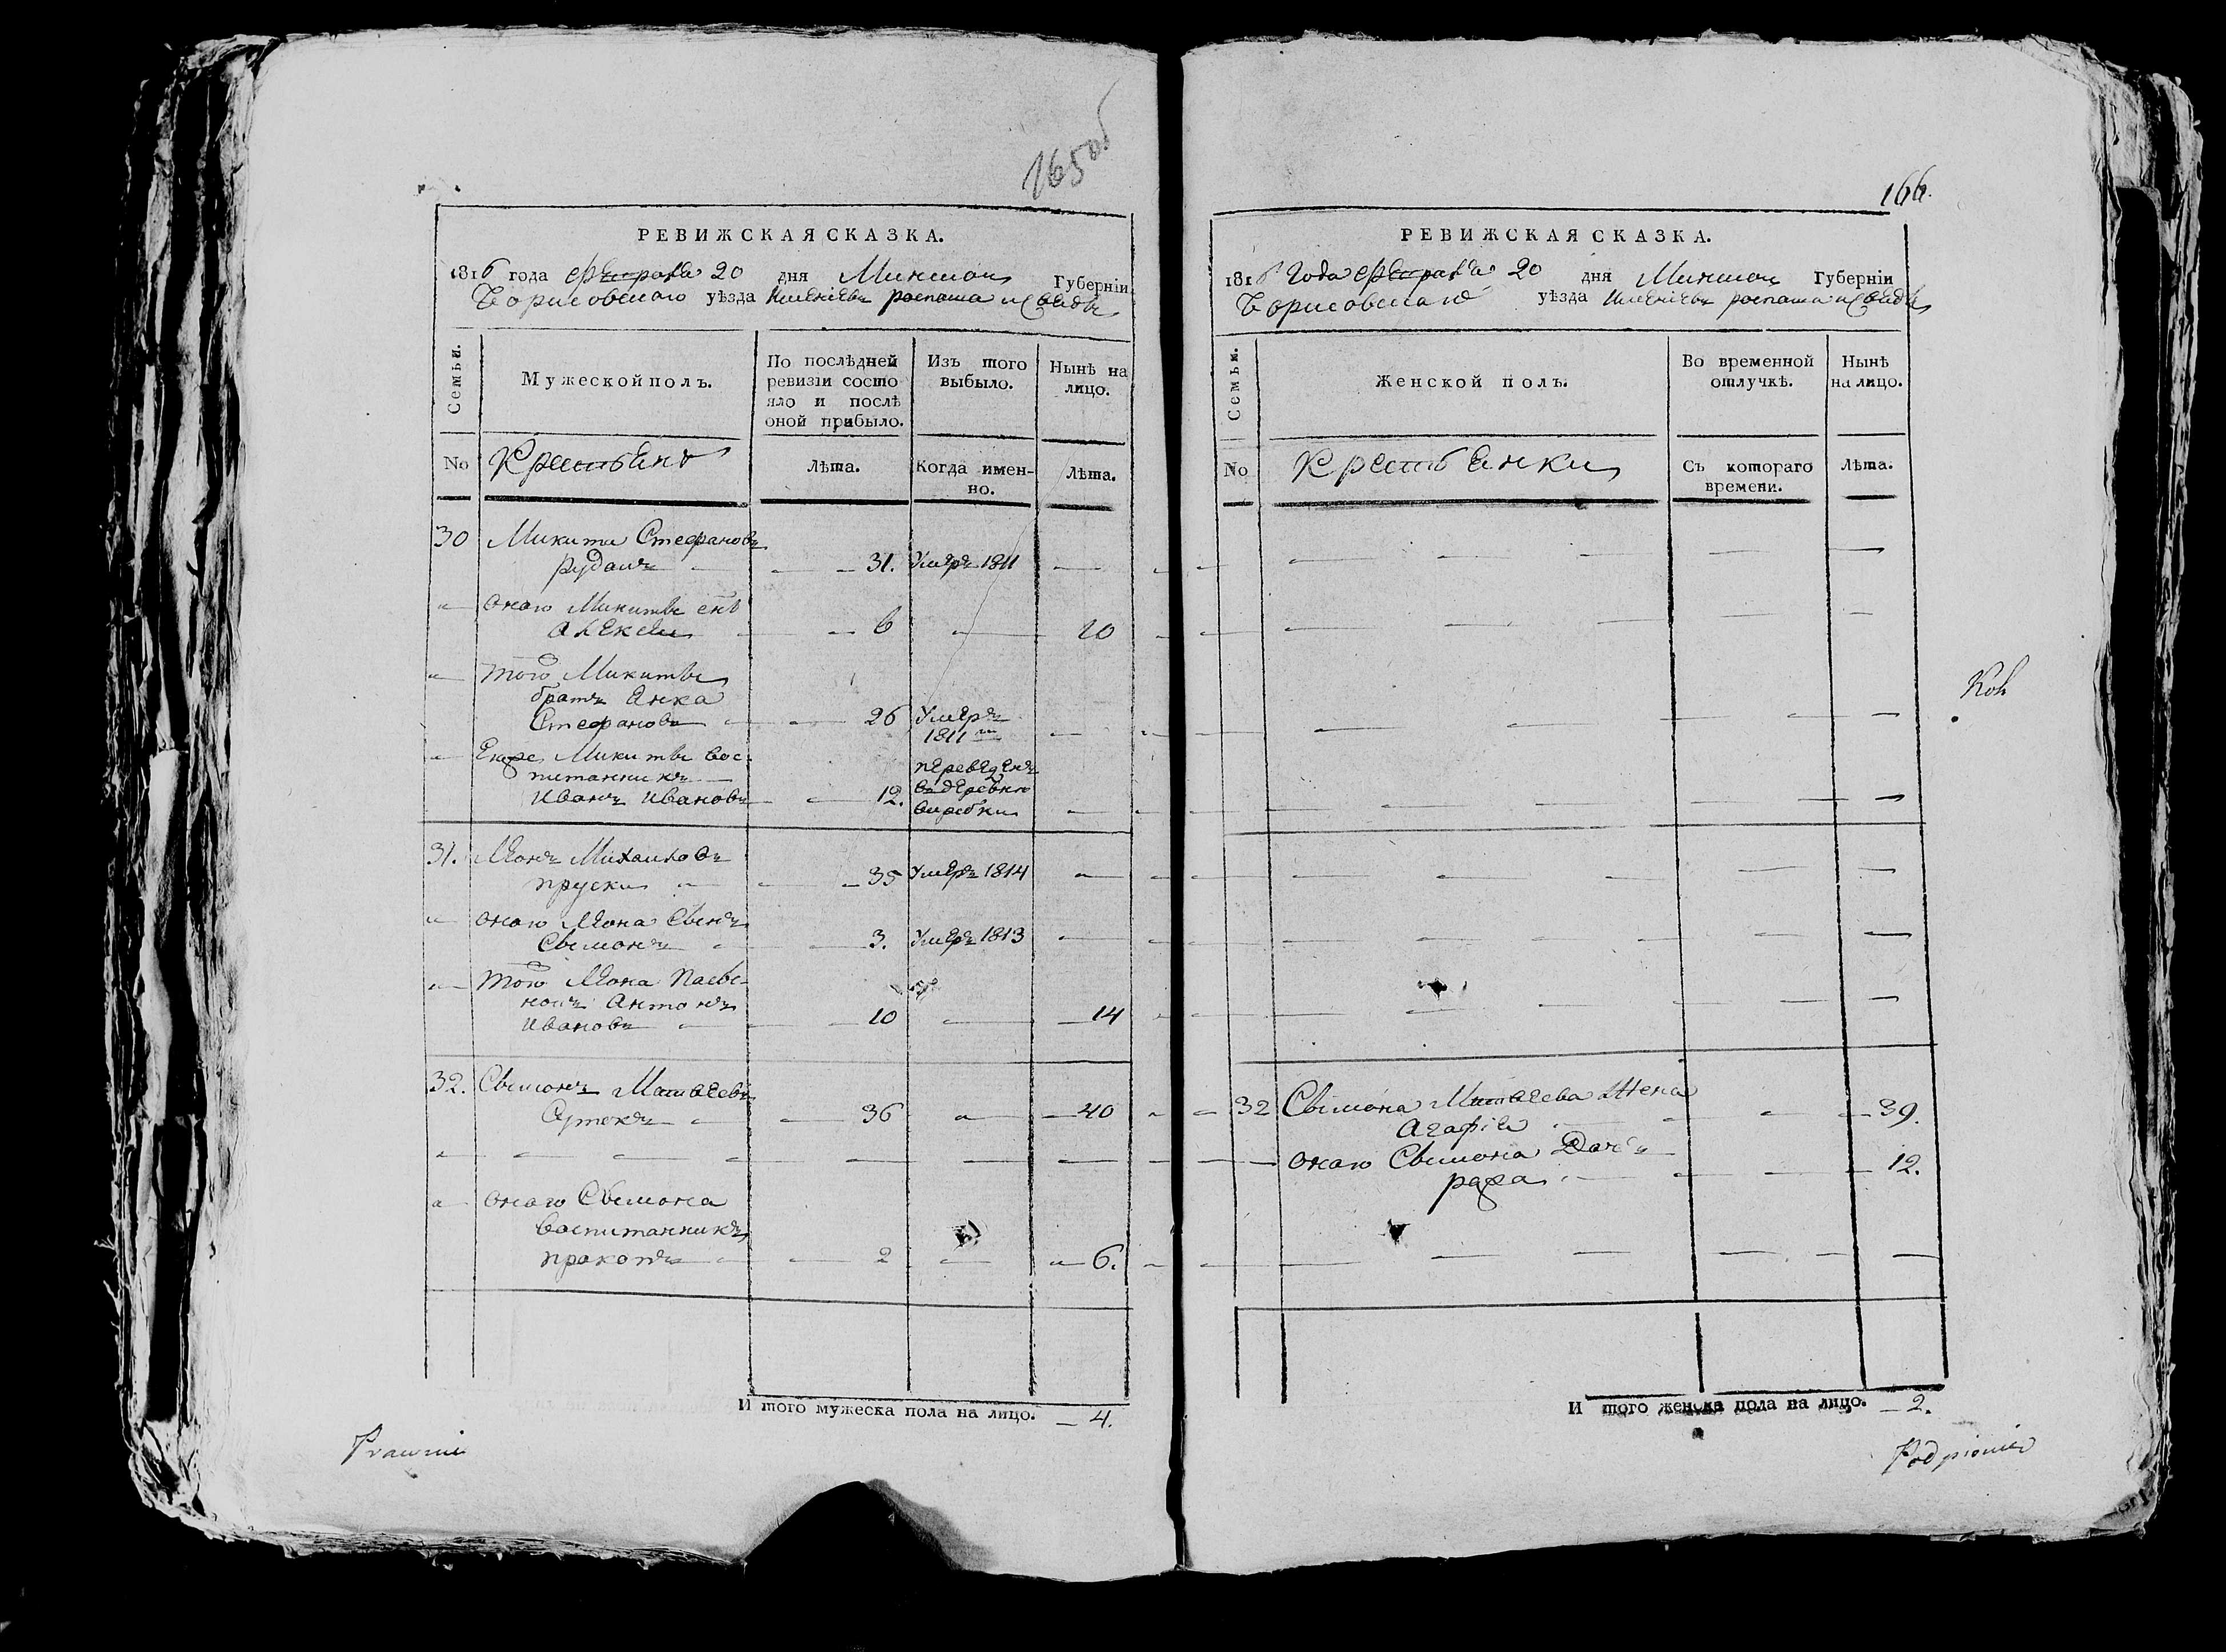 165 об
РЕВИЖСКАЯ СКАЗКА.
1816 года февраля 20 дня Минской Губерніи
Борисовскаго уѣзда
Семьи.
Мужеской полъ.
По послѣдней ревизіи состо
яло и послѣ
оной прибыло.
Изъ того
выбыло.
Нынѣ на
лицо.
No
Крестьяне
лѣта.
Когда имен-
но.
лѣта.
30 Микита Стефановъ
Рудакъ 31. Умеръ 1811
оного Микиты снъ
Алексей 6 10
того Микиты
братъ Янка
Стефановъ 26 Умеръ
1811
Микиты вос-
питанникъ переведенъ
Иванъ Ивановъ 12. в деревню
31. Леонъ Михайловъ
пруски 35 Умеръ 1814
оного Леона сынъ
Сымонъ 3. Умеръ 1813
того Леона пасы-
нокъ Антонъ
Ивановъ 10 14
32. Сымонъ Матвеевъ
36 40
оного Сымона
воспитанникъ
прокопъ 2 6.
И того мужеска пола на лицо. 4.
166.
РЕВИЖСКАЯ СКАЗКА.
1816 года февраля 20 дня Минской Губерніи
уѣзда
Семьи.
Женской полъ.
Во временной
отлучкѣ.
Нынѣ
на лицо.
No
Крестьянки
Съ котораго
времени.
лѣта.
32 Сымона Матвеева жена
Агафія 39.
оного Сымона дочь 12.
И того женска пола на лицо. 2.